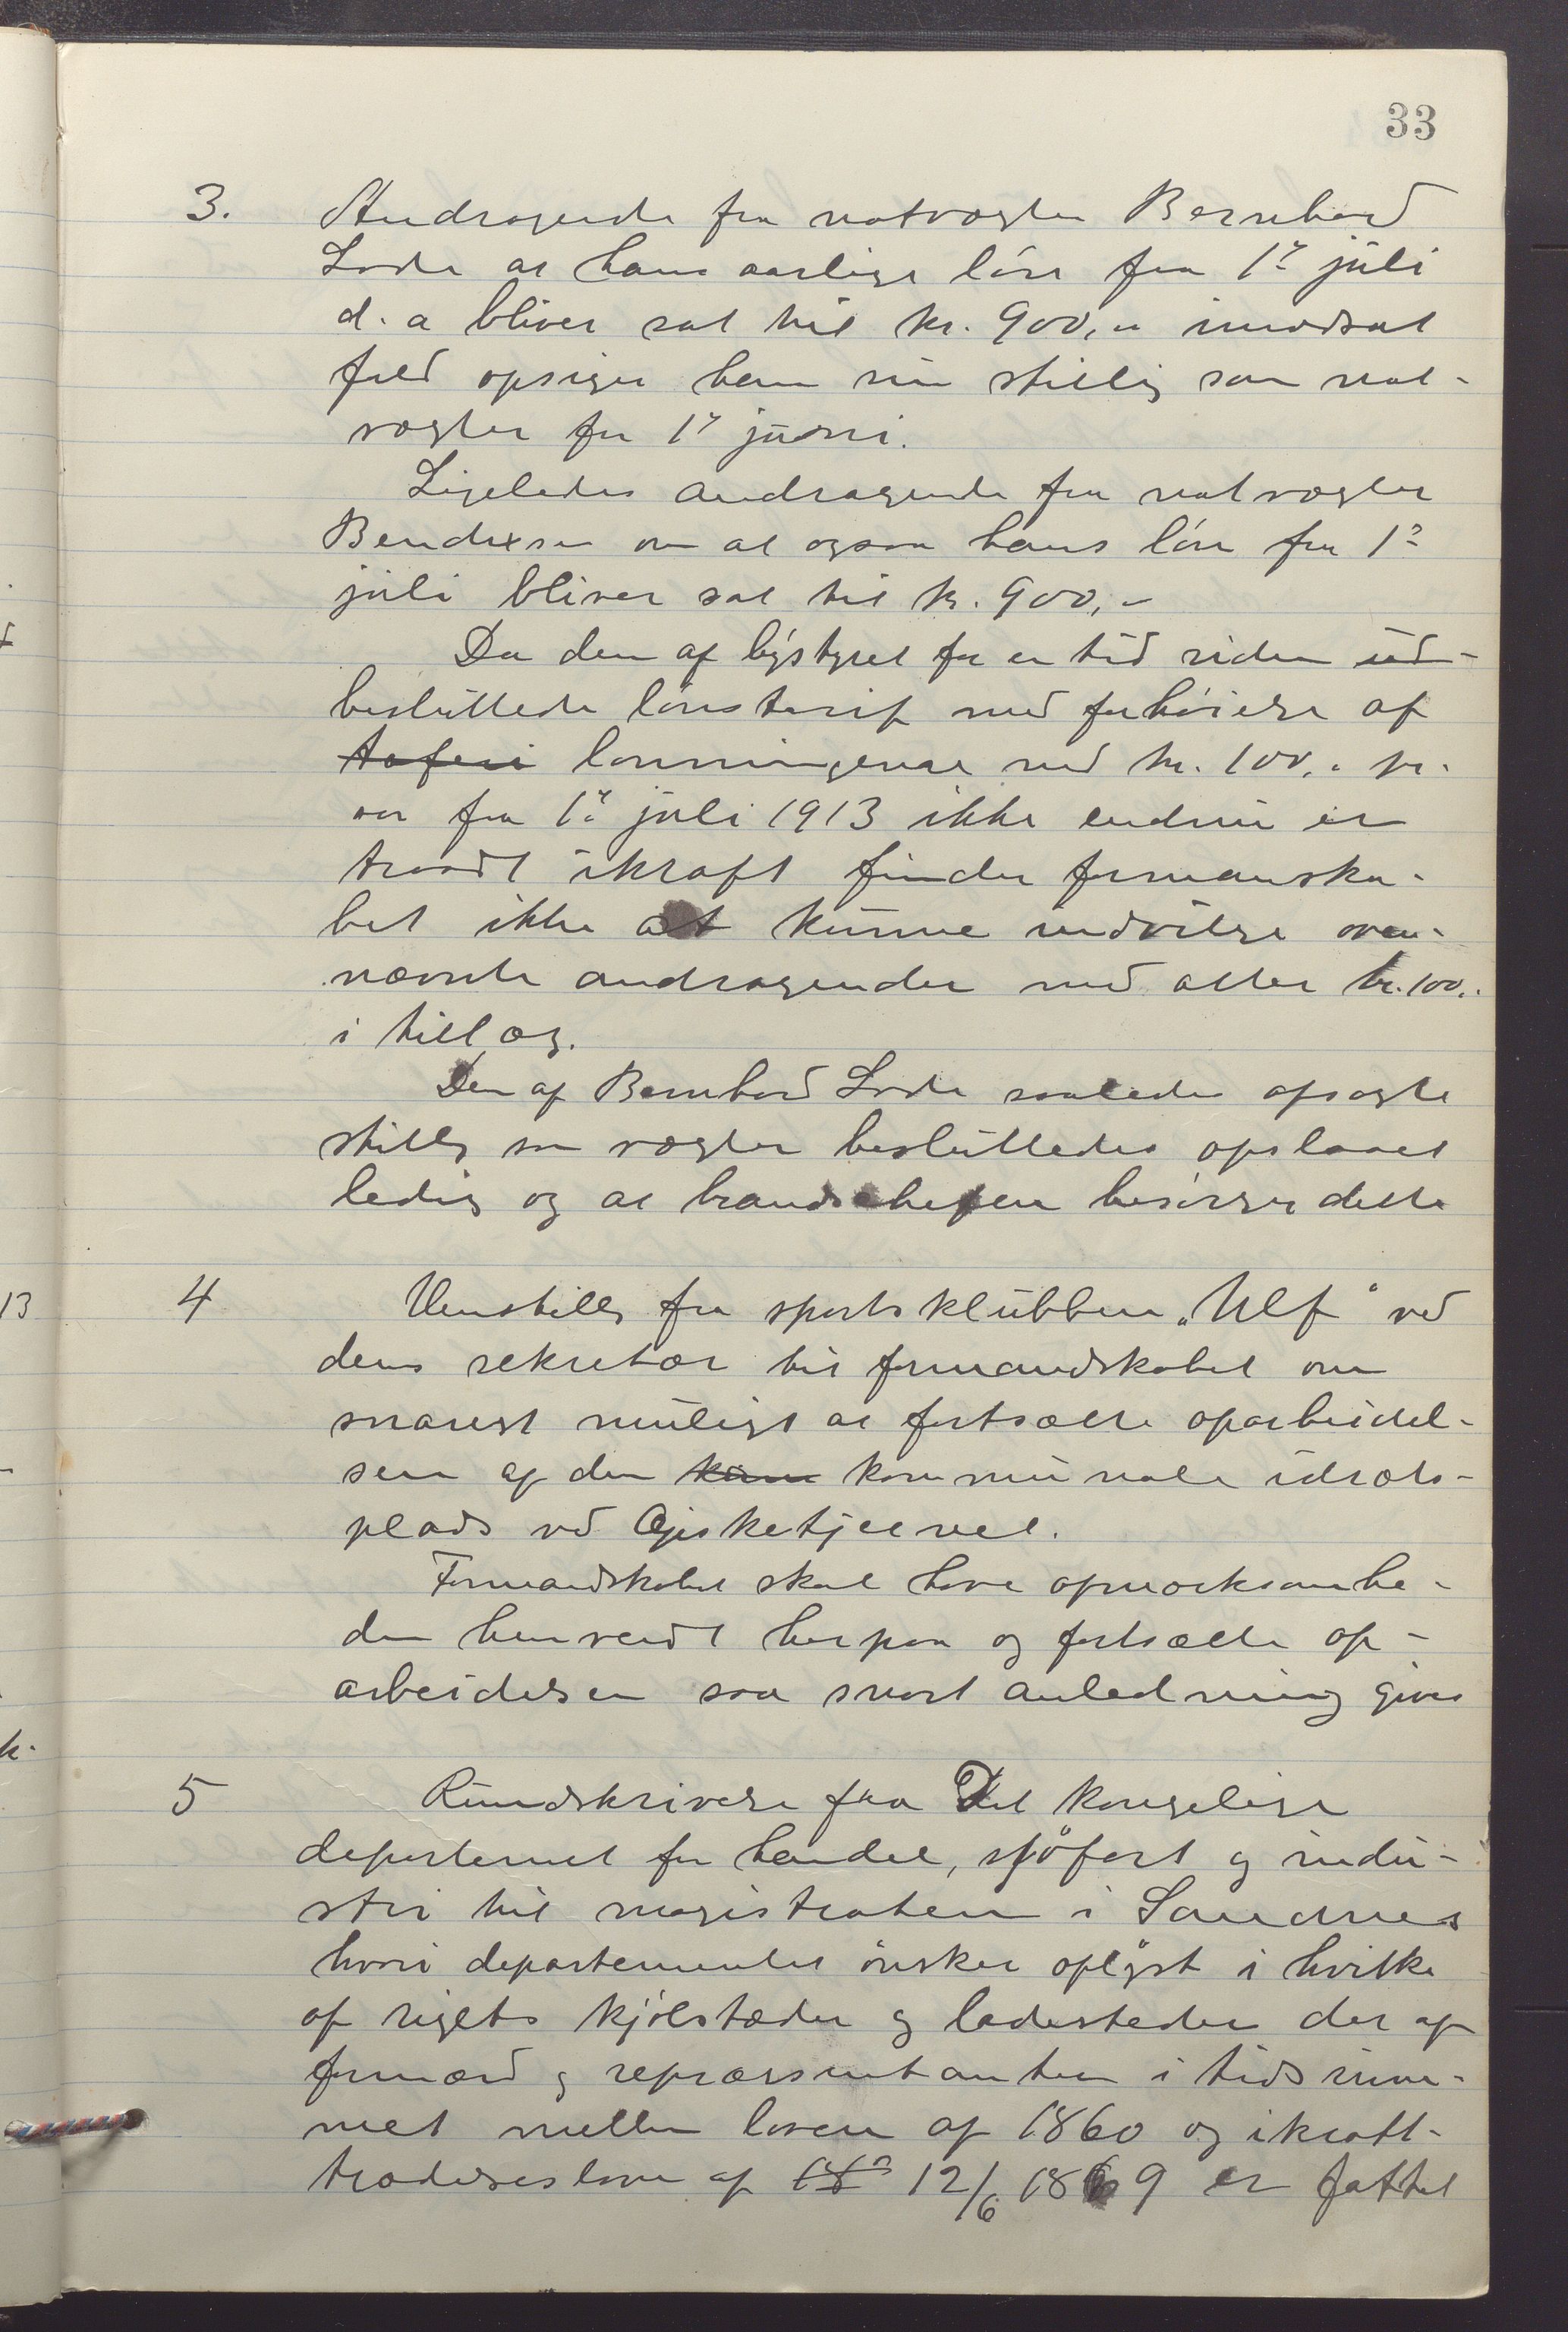 33
3. Andragende fra natvægter Bernhard
Lode at hans aarlige løn fra 1ste juli
d. a bliver sat til kr. 900,- imodsat
fald opsiger han sin stilling som nat-
vægter fra 1ste juni.
Ligeledes andragende fra natvægter
Bendixsen om at ogsaa hans løn fra 1ste
juli bliver sat til kr. 900,-
Da den af bystyret for en tid siden ud-
besluttede lønstarif med forhøielse af
taferi lønningerne med kr. 100,- pr.
aar fra 1ste juli 1913 ikke endnu er
traadt ikraft finder formanska-
bet ikke at kunne indvilge oven-
nævnte andragender med atter kr. 100,-
i tillæg.
Den af Bernhard Lode saaledes opsagte
stilling som vægter besluttedes opslaaet
ledig og at brandchefen besørger dette
4 Henstilling fra sportsklubben "Ulf" ved
dens sekretær til formandskabet om
snarest muligt at fortsætte oparbeidel-
sen af den kom kommunale idræts-
plads ved Gjisketjernet.
Formandskabet skal have opmærksomhe-
den henvendt herpaa og fortsætte op-
arbeidelsen saa snart anledning gives
13
k.
5 Rundskrivelse fra Det kongelige
departement for handel, sjøfart og indu-
stri til magistraten i Sandnes
hvori departementet ønsker oplyst i hvilke
af rigets kjøbstæder og ladesteder der af
formænd og repræsentanter i tidsrum-
met mellem loven af 1860 og ikraft-
trædelsesloven af 12/6 1869 er fattet